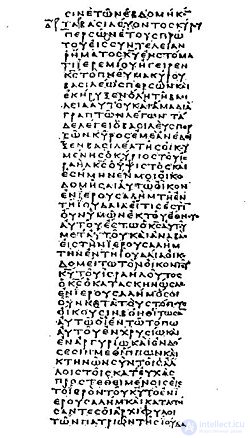 ΣΙΝΕΤΩΝΕΒΔΟΜΗΚ̅
ΤΑΒΑΣΙΛΕΥΟΝΤΟΣΚΥΡΟΥ
ΠΕΡΣΩΝΕΤΟΥΣΠΡΩ
ΤΟΥΕΙΣΣΥΝΤΕΛΕΙΑΝ
ΡΗΜΑΤΟΣΚ̅Υ̅ΕΝΣΤΟΜΑ
ΤΙΙΕΡΕΜΙΟΥΗΓΕΙΡΕΝ
Κ̅Σ̅ΤΟΠΝΕΥΜΑΚΥΡΟΥ
ΒΑΣΙΛΕΩΣΠΕΡΣΩΝΚΑΙ
ΕΚΗΡΥΞΕΝΟΛΗΤΗΒΑΣΙ
ΛΕΙΑΑΥΤΟΥΚΑΙΑΜΑΔΙΑ
ΓΡΑΠΤΩΝΛΕΓΩΝΤΑ
ΔΕΛΕΓΕΙΟΒΑΣΙΛΕΥΣΠΕΡ
ΣΩΝΚΥΡΟΣΕΜΕΑΝΕΔΕΙ
ΞΕΝΒΑΣΙΛΕΑΤΗΣΟΙΚΟΥ
ΜΕΝΗΣΟΚΥΡΙΟΣΤΟΥΙΣ
ΡΑΗΛΚ̅Σ̅ΟΥΨΙΣΤΟΣΚΑΙ
ΕΣΗΜΗΝΕΝΜΟΙΟΙΚΟ
ΔΟΜΗΣΑΙΑΥΤΩΟΙΚΟΝ
ΕΝΙΕΡΟΥΣΑΛΗΜΤΗΕΝ
ΤΗΙΟΥΔΑΙΑΕΙΤΙΣΕΣΤΙΝ
ΟΥΝΥΜΩΝΕΚΤΟΥΕΘΝΟΥΣ
ΑΥΤΟΥΕΣΤΩΟΚ̅Σ̅ΑΥΤΟΥ
ΜΕΤΑΥΤΟΥΚΑΙΑΝΑΒΑΣ
ΕΙΣΤΗΝΙΕΡΟΥΣΑΛΗΜ
ΤΗΝΕΝΤΗΙΟΥΔΑΙΑΟΙΚΟ
ΔΟΜΕΙΤΩΤΟΝΟΙΚΟΝΤΟΥ
Κ̅Υ̅ΤΟΥΙΣΡΑΗΛΟΥΤΟΣ
ΟΚ̅Σ̅ΟΚΑΤΑΣΚΗΝΩΣΑΣ
ΕΝΙΕΡΟΥΣΑΛΗΜΟΣΟΙ
ΟΥΝΚΑΤΑΤΟΥΣΤΟΠΟΥΣ
ΟΙΚΟΥΣΙΝΒΟΗΘΙΤΩΣΑΝ
ΑΥΤΩΟΙΕΝΤΩΤΟΠΩ
ΑΥΤΟΥΕΝΧΡΥΣΙΩΚΑΙ
ΕΝΑΡΓΥΡΙΩΚΑΙΕΝΔΟ
ΣΕΣΙΝΜΕΘΙΠΠΩΝΚΑΙ
ΚΤΗΝΩΝΣΥΝΤΟΙΣΑΛ
ΛΟΙΣΤΟΙΣΚΑΤΕΥΧΑΣ
ΠΡΟΣΤΕΘΕΙΜΕΝΟΙΣΕΙΣ
ΤΟΙΕΡΟΝΤΟΥΚ̅Υ̅ΤΟΕΝ
ΙΕΡΟΥΣΑΛΗΜΚΑΙΚΑΤΑΣΤΗ
ΣΑΝΤΕΣΟΙΑΡΧΙΦΥΛΟΙ
ΤΩΝΠΑΤΡΙΩΝΤΗΣΙΟΥΔΑ